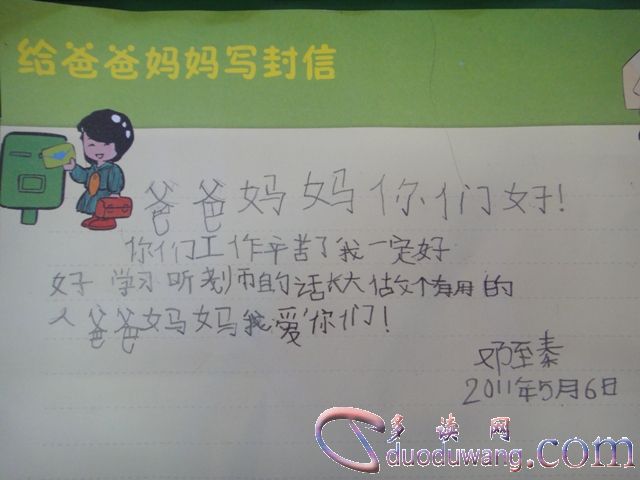 给爸爸妈妈写封信
爸爸妈妈你们好!
你们工作辛苦了我一定好
好学习听老师的话长大做个有用的
人爸爸妈妈我爱你们!
邓至秦
2011年5月6日
多读网
duoduwang.com